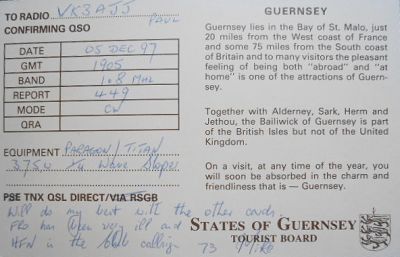 TO RADIO VK3AJJ
PAUL
CONFIRMING QSO
DATE 05 DEC 97
GMT 1905
BAND 1.8 MHz
REPORT 449
MODE CW
QRA
EQUIPMENT PARAGON/TITAN
375W 1/4 Wave Sloper
PSE TNX QSL DIRECT/VIA RSGB
Will do my best with the other cards.
has been very ill and
is the calling
73 Mike
GUERNSEY
Guernsey lies in the Bay of St. Malo, just
20 miles from the West coast of France
and some 75 miles from the South coast
of Britain and to many visitors the pleasant
feeling of being both "abroad" and "at
home" is one of the attractions of Guern-
sey.
Together with Alderney, Sark, Herm and
Jethou, the Bailiwick of Guernsey is part
of the British Isles but not of the United
Kingdom.
On a visit, at any time of the year, you
will soon be absorbed in the charm and
friendliness that is — Guernsey.
STATES OF GUERNSEY
TOURIST BOARD